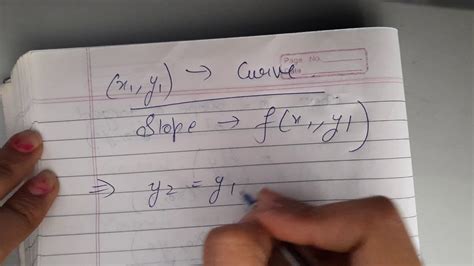 Page No.
Date
(x₁, y₁) → Curve
Slope → f(x₁, y₁)
⇒ y₂ = y₁